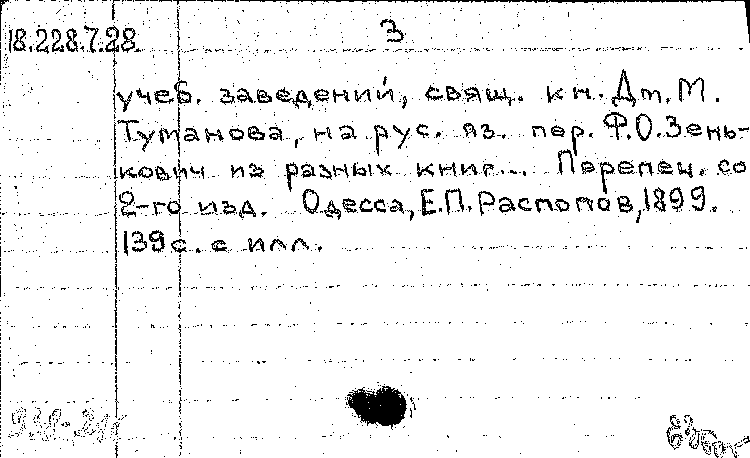 18.228.7.28
3
учеб. заведений, свящ. кн. Дм. М.
Туманова, на рус. яз. пер. Ф.О. Зень-
кович из разных книг... Перепеч. со
2-го изд. Одесса, Е.П. Распопов, 1899.
139 с. с илл.